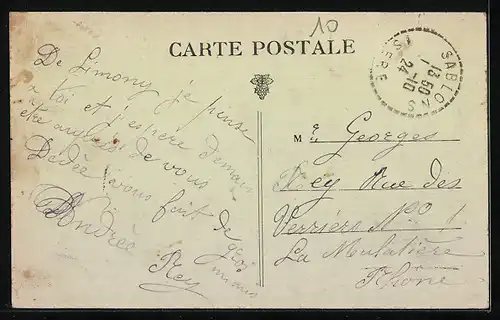 10
CARTE POSTALE
SABLONS
ISERE
13 50
24 -10
De Limony je pense
a toi et j'espère demain
etre auprès de vous
Dédée vous fait de gros
mimis
Andrée
Rey
Mr Georges
Rey Rue des
Verriers No 1
La Mulatière
Rhône